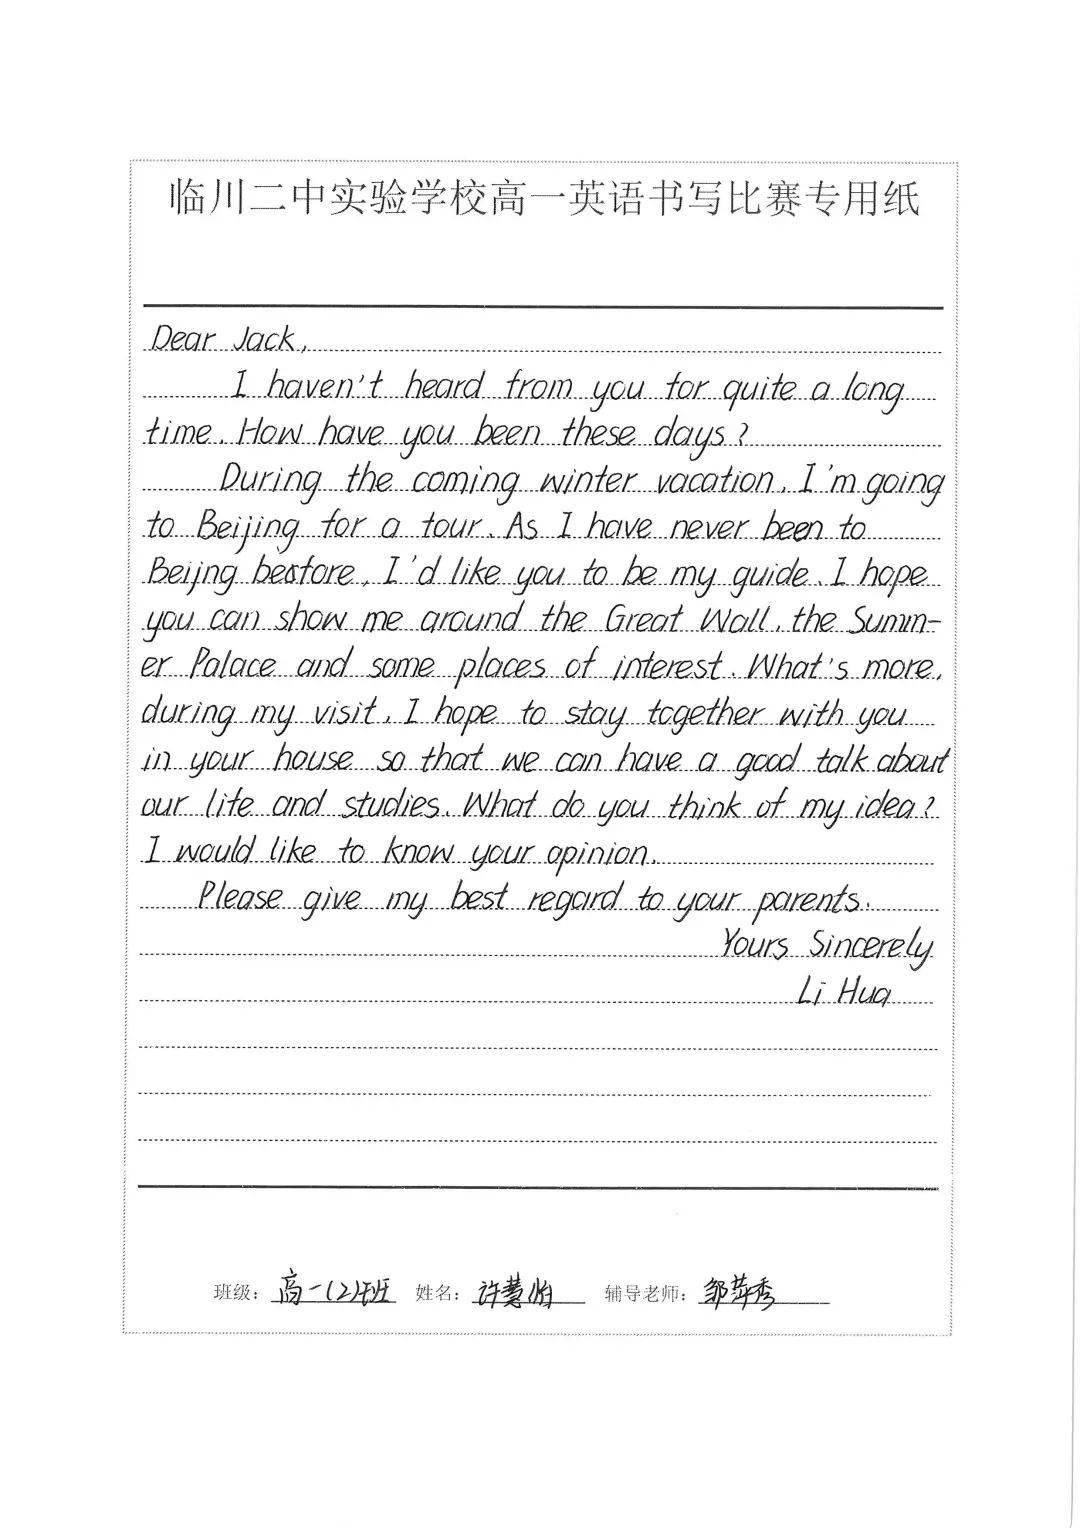 临川二中实验学校高一英语书写比赛专用纸
Dear Jack,
I haven't heard from you for quite a long
time. How have you been these days?
During the coming winter vacation, I'm going
to Beijing for a tour. As I have never been to
Beijng before, I'd like you to be my guide. I hope
you can show me around the Great Wall, the Summ-
er Palace and some places of interest. What's more,
during my visit, I hope to stay together with you
in your house so that we can have a good talk about
our life and studies. What do you think of my idea?
I would like to know your opinion.
Please give my best regard to your parents.
Yours Sincerely
Li Hua
班级: 高一(2)班 姓名: 许慧怡 辅导老师: 邹萍秀